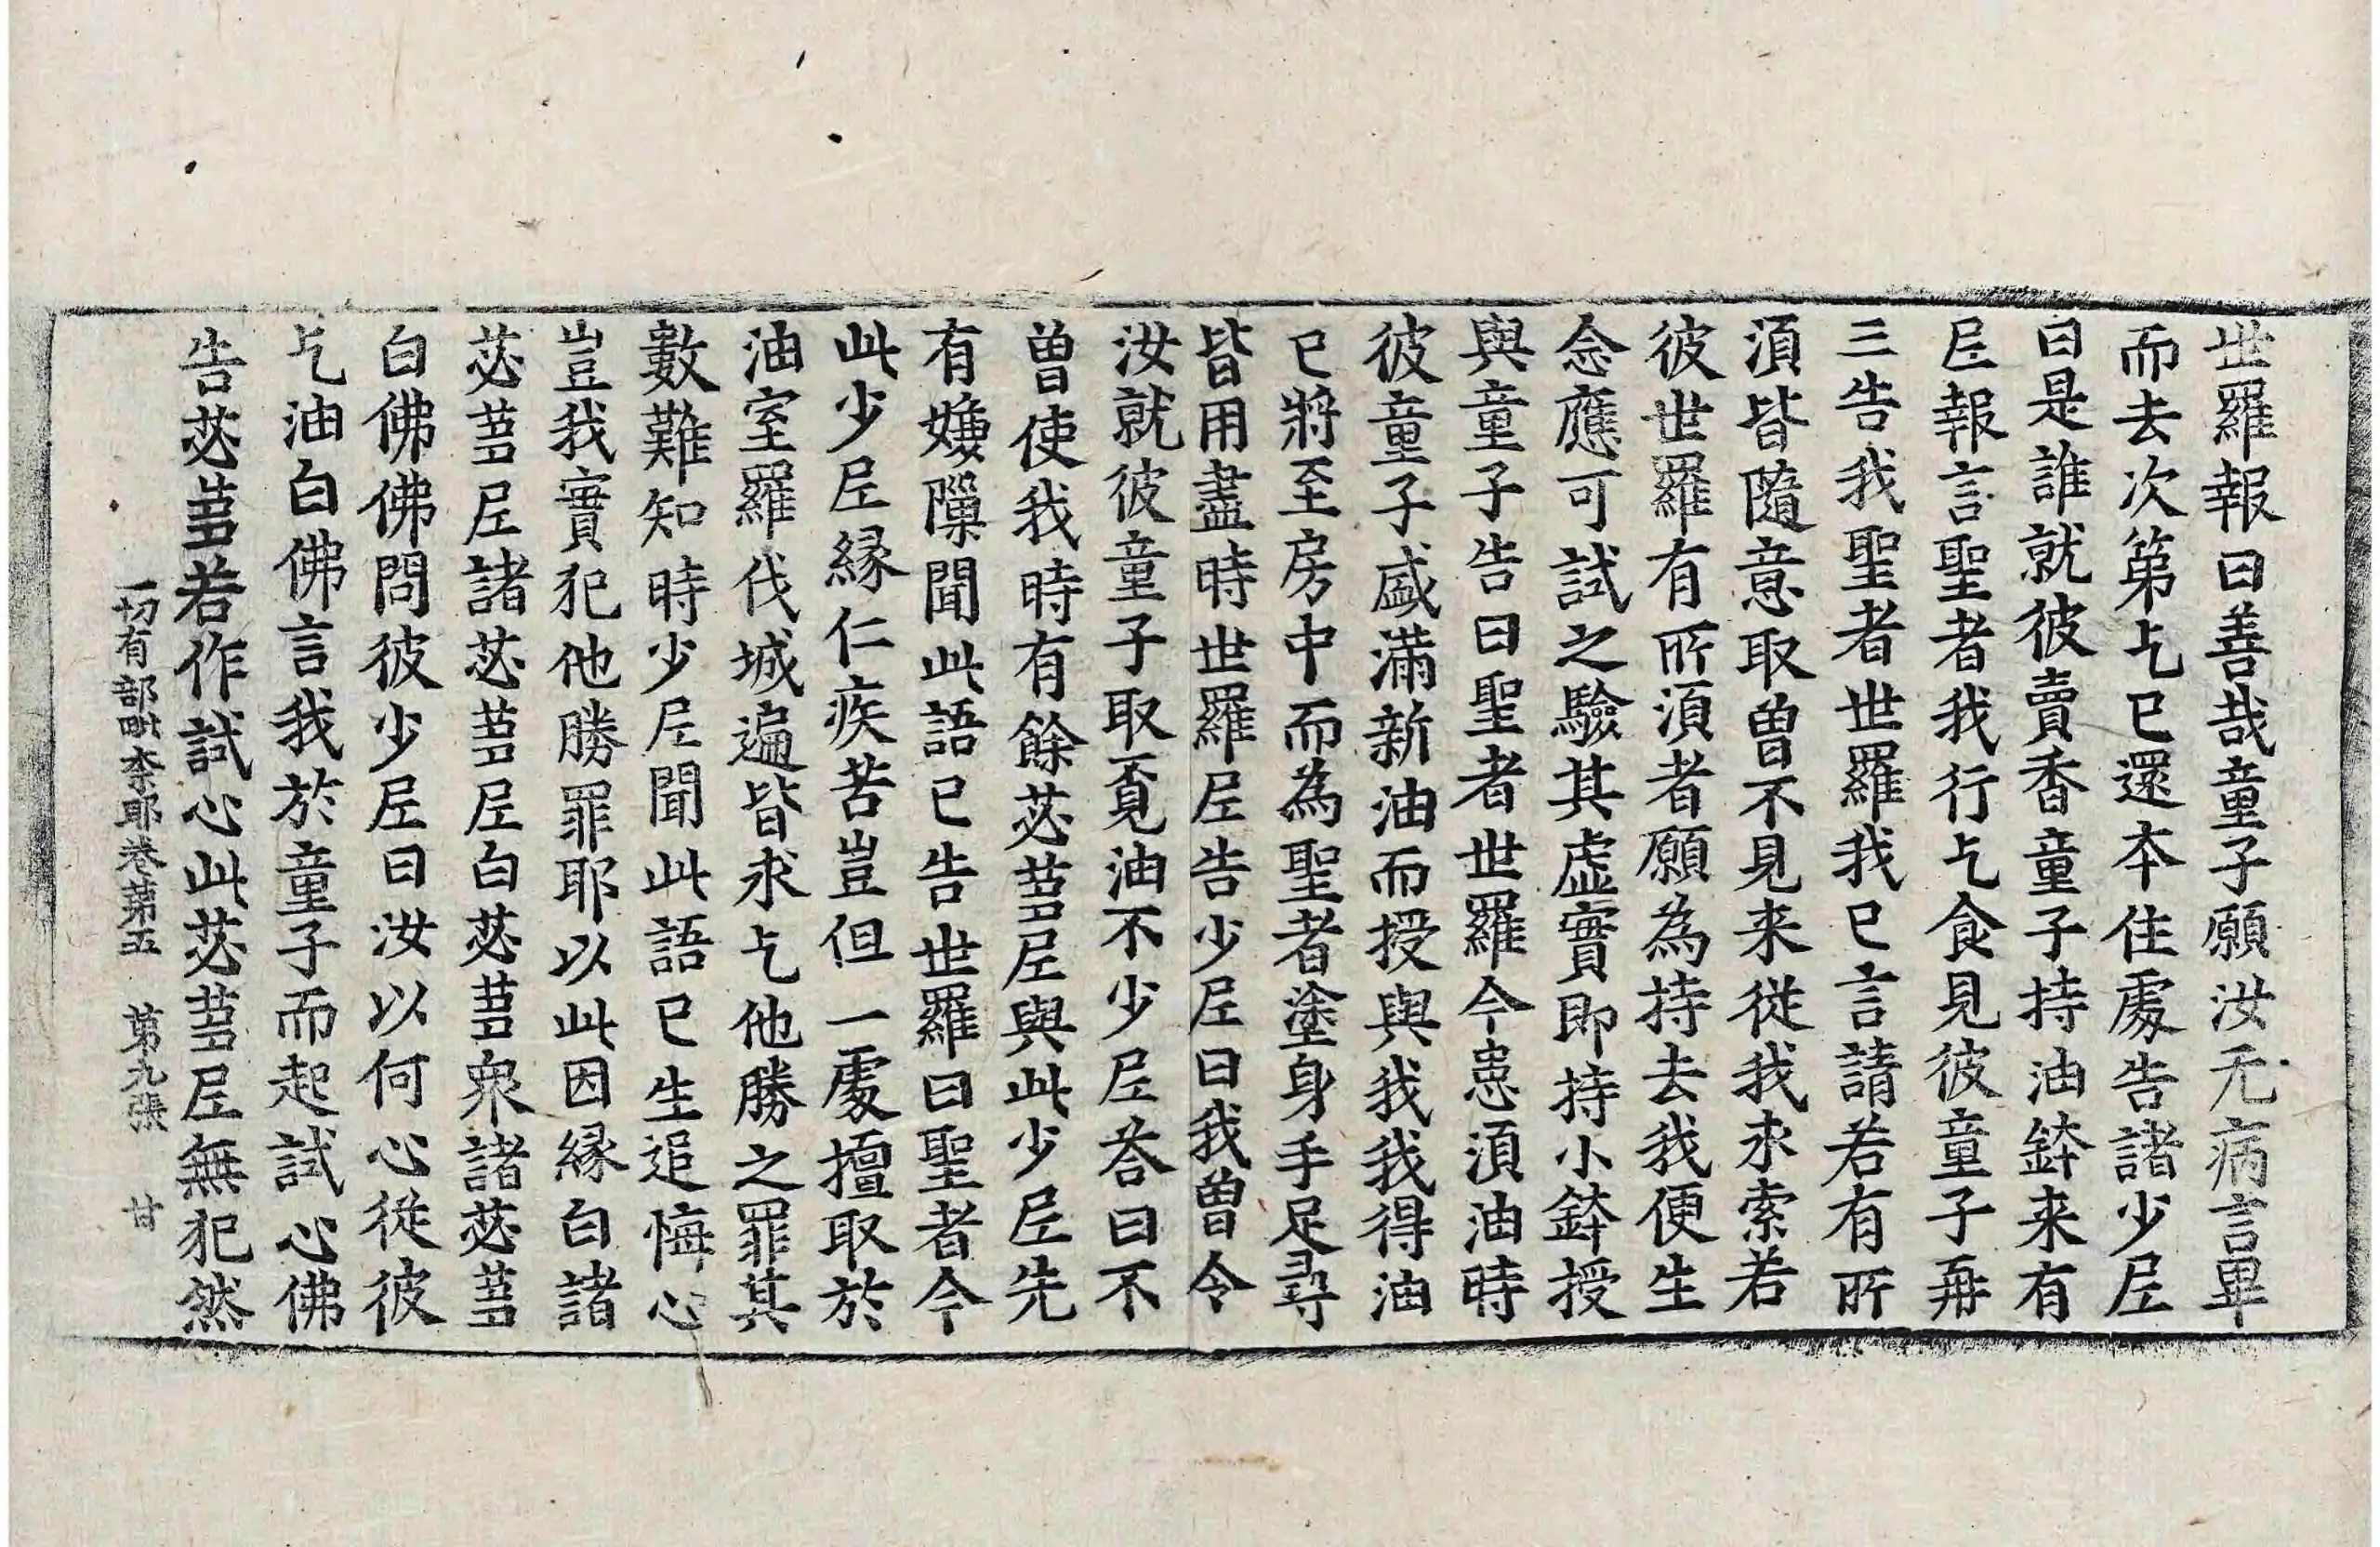 世羅報曰善哉童子願汝无病言畢
而去次第乞已還本住處告諸少尼
曰是誰就彼賣香童子持油鉢来有
尼報言聖者我行乞食見彼童子再
三告我聖者世羅我已言請若有所
湏皆隨意取曾不見来從我求索若
彼世羅有所湏者願為持去我便生
念應可試之驗其虛實即持小鉢授
與童子告曰聖者世羅今患湏油時
彼童子盛滿新油而授與我我得油
已將至房中而為聖者塗身手足尋
皆用盡時世羅尼告少尼曰我曾令
汝就彼童子取覔油不少尼荅曰不
曾使我時有餘苾蒭尼與此少尼先
有嫌隟聞此語已告世羅曰聖者今
此少尼緣仁疾苦豈但一處擅取於
油室羅伐城遍皆求乞他勝之罪其
數難知時少尼聞此語已生追悔心
豈我實犯他勝罪耶以此因緣白諸
苾蒭尼諸苾蒭尼白苾蒭衆諸苾蒭
白佛佛問彼少尼曰汝以何心從彼
乞油白佛言我於童子而起試心佛
告苾蒭若作試心此苾蒭尼無犯然
一切有部毗奈耶卷第五 第九張 甘